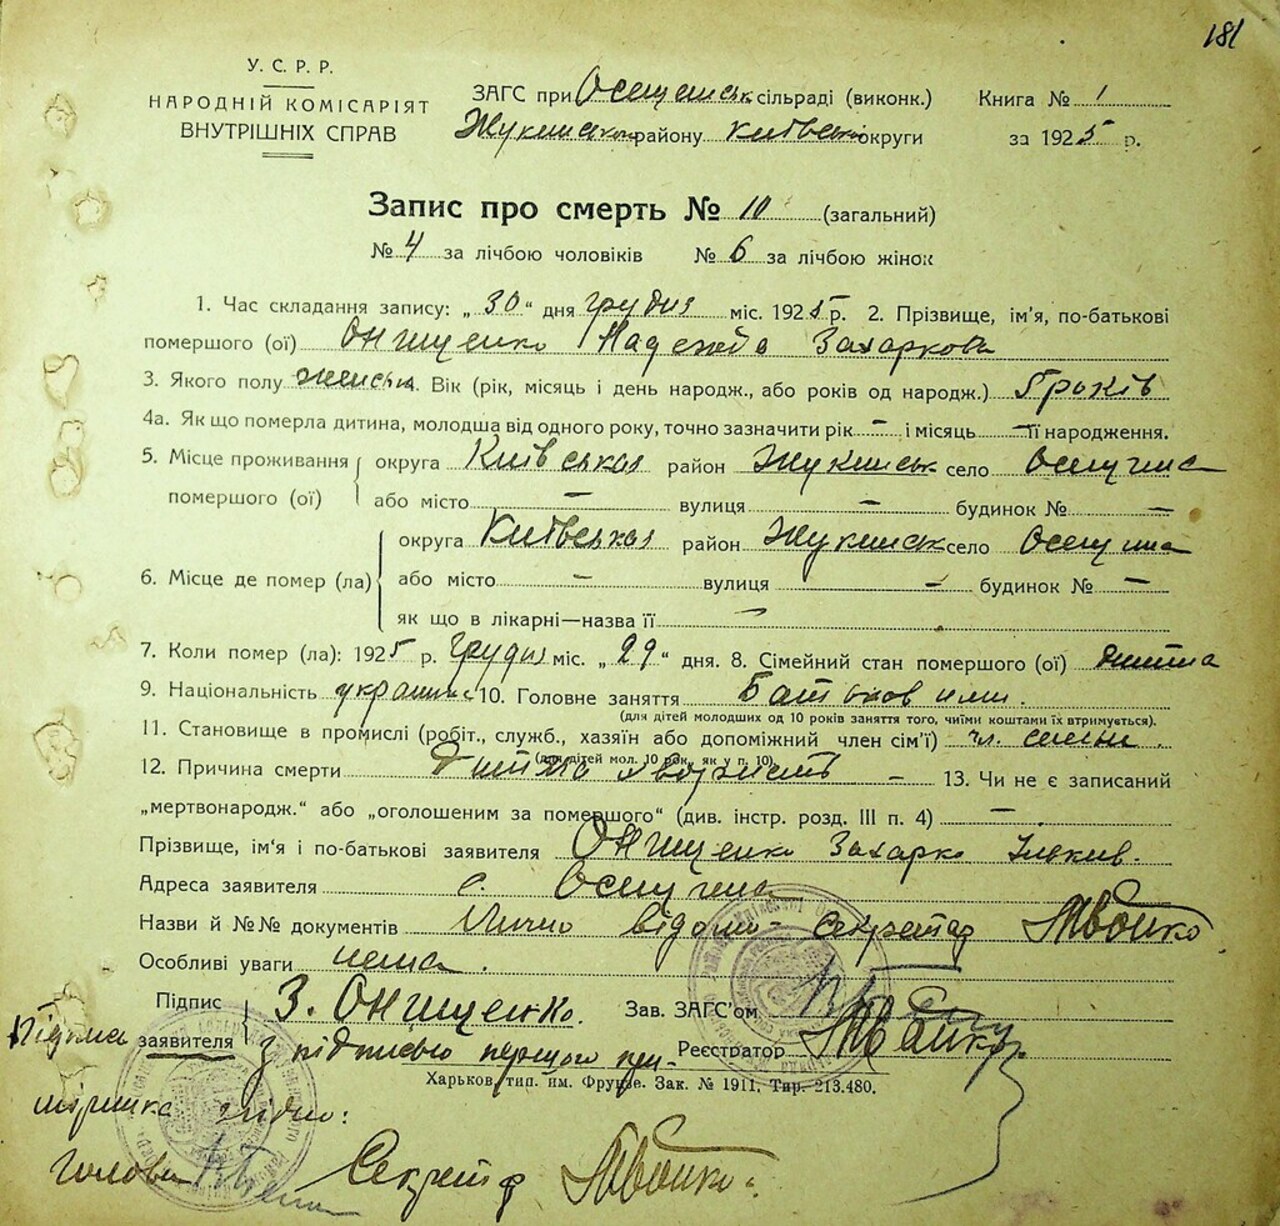 181
У. С. Р. Р.
НАРОДНІЙ КОМІСАРІЯТ
ВНУТРІШНІХ СПРАВ
ЗАГС при Осещенськ сільраді (виконк.) Книга № 1
Жукинськ району Київськ округи за 1925 р.
Запис про смерть № 10 (загальний)
№ 4 за лічбою чоловіків № 6 за лічбою жінок
1. Час складання запису: „30“ дня грудня міс. 1925 р. 2. Прізвище, ім'я, по-батькові
помершого (ої) Онищенко Надежда Захаркова
3. Якого полу женськ. 4. Вік (рік, місяць і день народж., або років од народж.) 5 років
4а. Як що померла дитина, молодша від одного року, точно зазначити рік – і місяць – її народження.
5. Місце проживання помершого (ої) округа Київська район Жукинськ село Осещина
або місто – вулиця – будинок № –
6. Місце де помер (ла) округа Київська район Жукинськ село Осещина
або місто – вулиця – будинок № –
як що в лікарні—назва її –
7. Коли помер (ла): 1925 р. Грудня міс. „29“ дня. 8. Сімейний стан помершого (ої) дитина
9. Національність україн. 10. Головне заняття
(для дітей молодших од 10 років заняття того, чиїми коштами їх втримується).
11. Становище в промислі (робіт., служб., хазяїн або допоміжний член сім'ї) чл. семьи.
(для дітей мол. 10 рок., як у п. 10).
12. Причина смерти – 13. Чи не є записаний
„мертвонародж.“ або „оголошеним за помершого“ (див. інстр. розд. III п. 4) –
Прізвище, ім'я і по-батькові заявителя Онищенко Захарко Ильків.
Адреса заявителя с. Осещина
Назви й №№ документів Лично відомо – секретар
Особливі уваги нема.
Підпис заявителя З. Онищенко. Зав. ЗАГС'ом
Реєстратор
Харьков, тип. им. Фрунзе. Зак. № 1911. Тир. 213.480.
з підписью першого
мірника згідно:
Голова Секретар